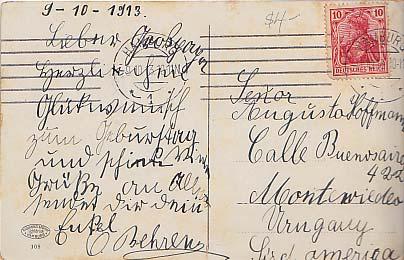 9-10-1913.
$4-
Lieber Großpapa
Herzlichen
Glükwunsch
zum Geburtstag
und schicke viele
Grüße an Alle
sendet dir dein
Enkel
C Behrens
10 10
DEUTSCHES REICH
Senor
Augusto Hoffmann
Calle Buenos aires
422
Montewideo
Uruguay
Süd america
108